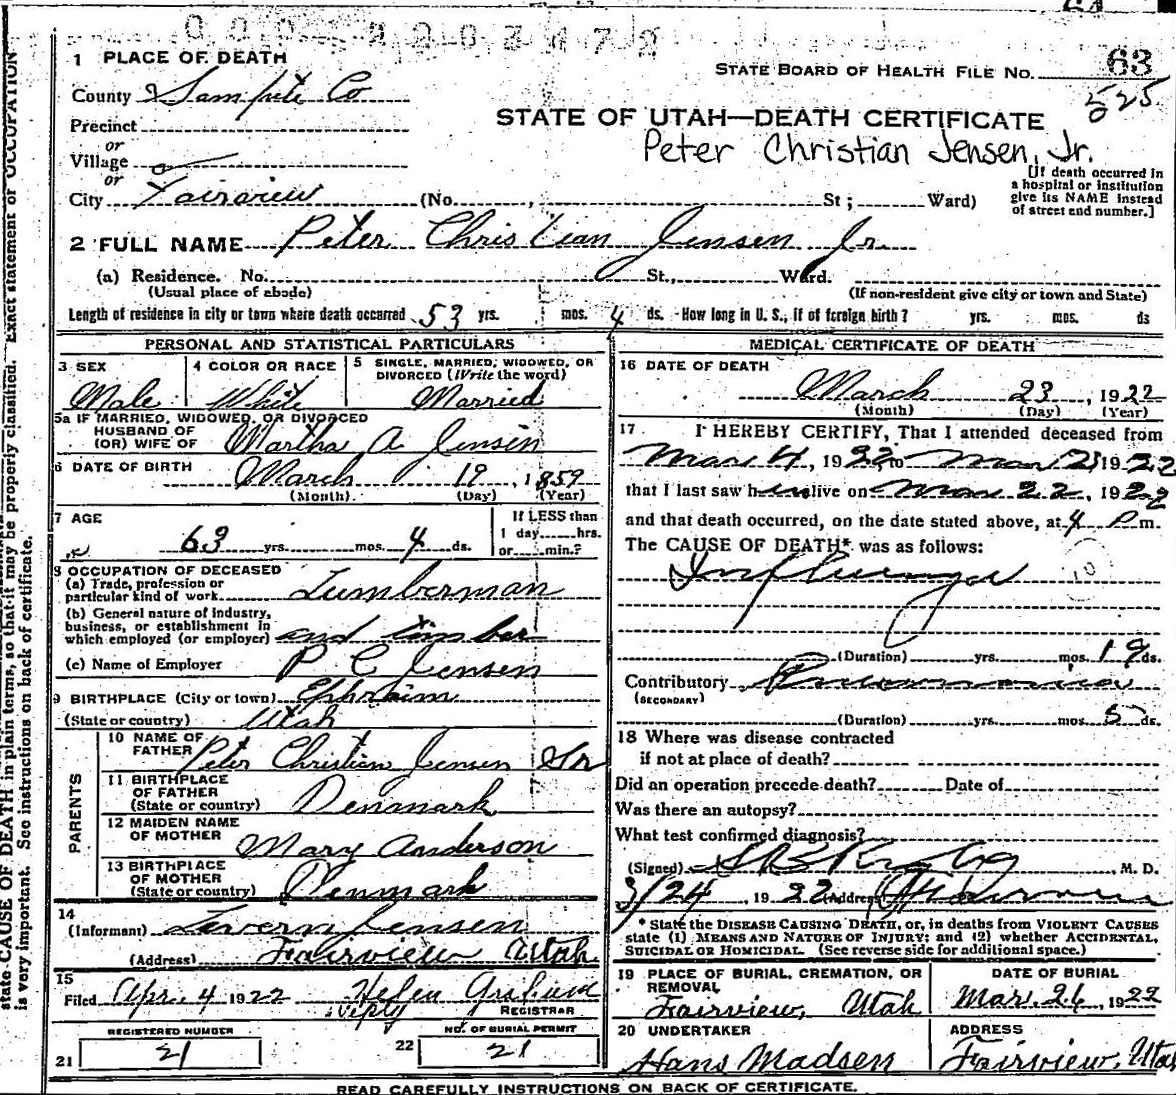 000 2203472
1 PLACE OF DEATH
STATE BOARD OF HEALTH FILE No. 63
525
County Sanpete Co
STATE OF UTAH—DEATH CERTIFICATE
Precinct
or
Peter Christian Jensen, Jr.
Village
or
[If death occurred in a hospital or institution give its NAME instead of street end number.]
City Fairview (No. , St; Ward)
2 FULL NAME Peter Christian Jensen Jr.
(a) Residence. No. St., Ward.
(Usual place of abode) (If non-resident give city or town and State)
Length of residence in city or town where death occurred 53 yrs. mos. 4 ds. How long in U. S., if of foreign birth? yrs. mos. ds
PERSONAL AND STATISTICAL PARTICULARS
3 SEX
Male
4 COLOR OR RACE
White
5 SINGLE, MARRIED, WIDOWED, OR DIVORCED (Write the word)
Married
5a IF MARRIED, WIDOWED, OR DIVORCED
HUSBAND OF
(OR) WIFE OF Martha A Jensen
6 DATE OF BIRTH March 19, 1859
(Month) (Day) (Year)
7 AGE
63 yrs. mos. 4 ds.
If LESS than
1 day hrs.
or min.?
8 OCCUPATION OF DECEASED
(a) Trade, profession or
particular kind of work Lumberman
(b) General nature of industry,
business, or establishment in
which employed (or employer) and timber
(c) Name of Employer P C Jensen
9 BIRTHPLACE (City or town) Ephraim
(State or country) Utah
PARENTS
10 NAME OF
FATHER Peter Christian Jensen Sr
11 BIRTHPLACE
OF FATHER
(State or country) Denmark
12 MAIDEN NAME
OF MOTHER Mary Anderson
13 BIRTHPLACE
OF MOTHER
(State or country) Denmark
14
(Informant) Lavern Jensen
(Address) Fairview Utah
15
Filed Apr. 4 1922 Helen Graham
REGISTRAR
REGISTERED NUMBER
21 21
NO. OF BURIAL PERMIT
22 21
MEDICAL CERTIFICATE OF DEATH
16 DATE OF DEATH
March 23, 1922
(Month) (Day) (Year)
17 I HEREBY CERTIFY, That I attended deceased from
Mar 4, 1922 to Mar 23 1922
that I last saw him alive on Mar 22, 1922
and that death occurred, on the date stated above, at 4 P m.
The CAUSE OF DEATH* was as follows:
Influenza
10
(Duration) yrs. mos. 19 ds.
Contributory Pneumonia
(SECONDARY)
(Duration) yrs. mos. 5 ds.
18 Where was disease contracted
if not at place of death?
Did an operation precede death? Date of
Was there an autopsy?
What test confirmed diagnosis?
(Signed) M. D.
3/24, 1922 (Address) Fairview
* State the DISEASE CAUSING DEATH, or, in deaths from VIOLENT CAUSES
state (1) MEANS AND NATURE OF INJURY; and (2) whether ACCIDENTAL,
SUICIDAL OR HOMICIDAL. (See reverse side for additional space.)
19 PLACE OF BURIAL, CREMATION, OR
REMOVAL
Fairview, Utah
DATE OF BURIAL
Mar. 26, 1922
20 UNDERTAKER
Hans Madsen
ADDRESS
Fairview, Utah
READ CAREFULLY INSTRUCTIONS ON BACK OF CERTIFICATE.
state CAUSE OF DEATH in plain terms, so that it may be properly classified. Exact statement of OCCUPATION
is very important. See instructions on back of certificate.